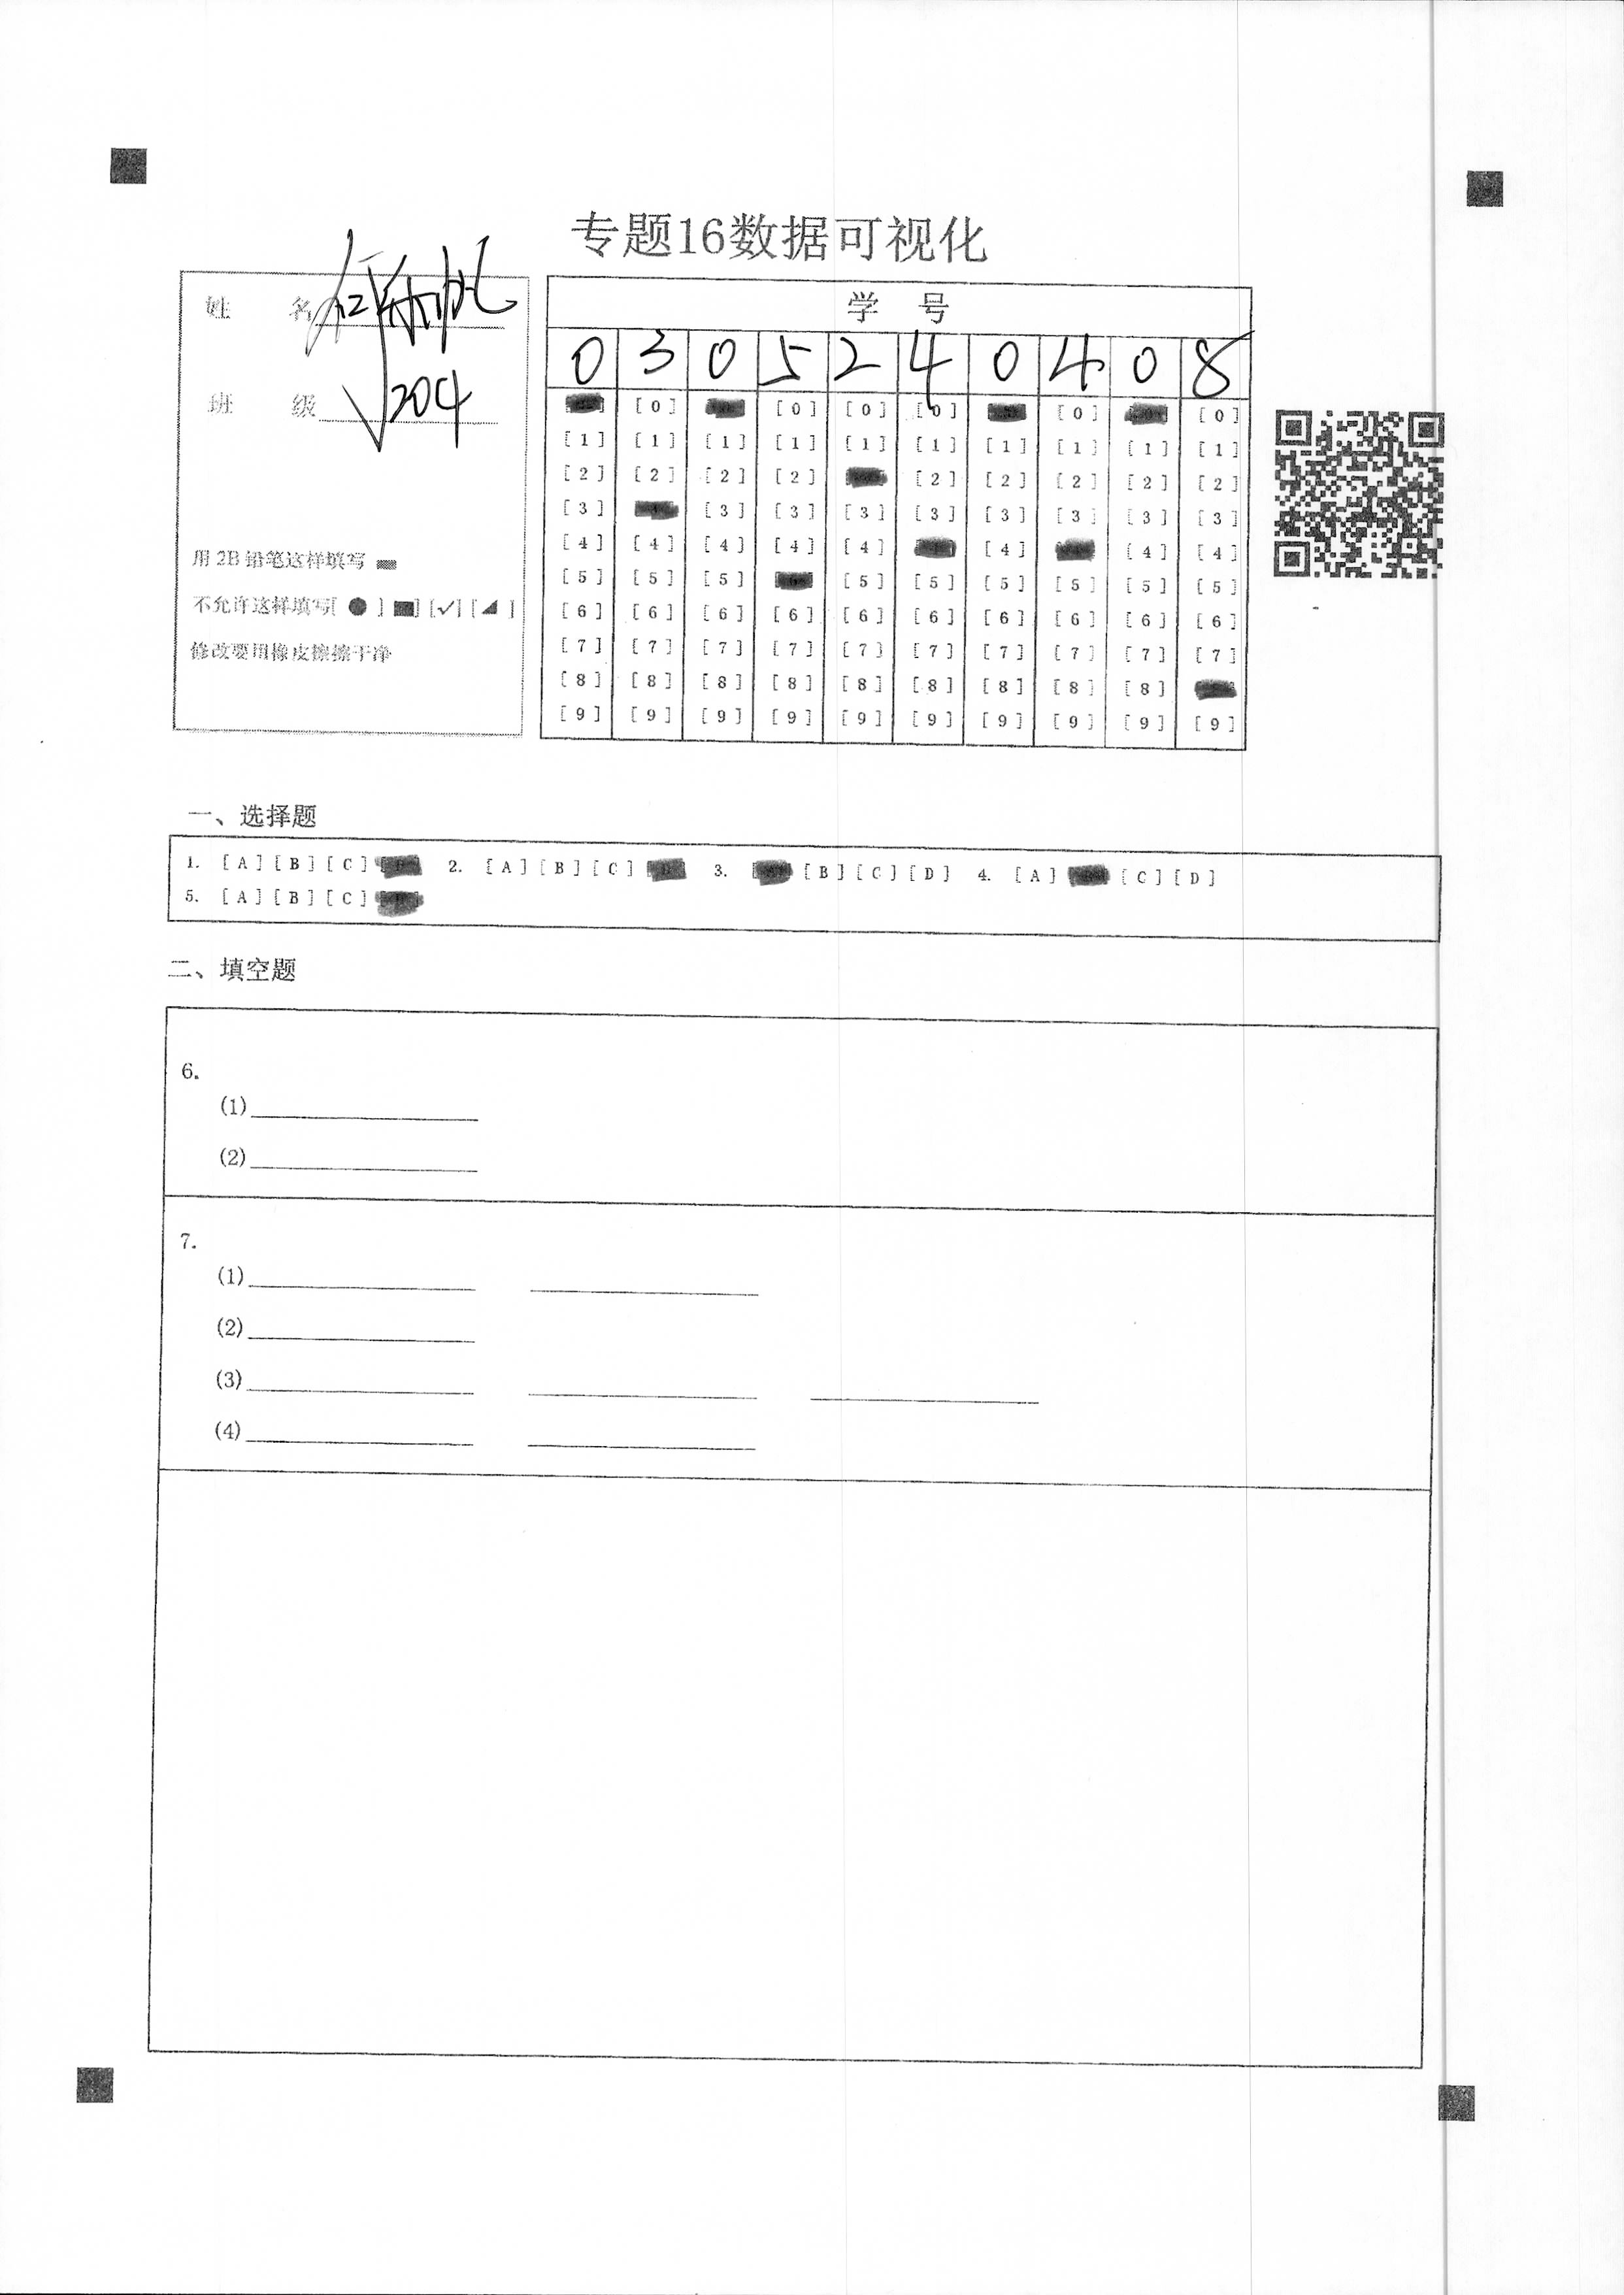 专题16数据可视化
姓 名
班 级 204
用 2B 铅笔这样填写
不允许这样填写[ ● ] ■] [✓] [◢ ]
修改要用橡皮擦擦干净
学 号
0 3 0 5 2 4 0 4 0 8
[0] [0] [0] [0] [0] [0]
[1] [1] [1] [1] [1] [1] [1] [1] [1] [1]
[2] [2] [2] [2] [2] [2] [2] [2] [2]
[3] [3] [3] [3] [3] [3] [3] [3] [3]
[4] [4] [4] [4] [4] [4] [4] [4]
[5] [5] [5] [5] [5] [5] [5] [5] [5]
[6] [6] [6] [6] [6] [6] [6] [6] [6] [6]
[7] [7] [7] [7] [7] [7] [7] [7] [7] [7]
[8] [8] [8] [8] [8] [8] [8] [8] [8]
[9] [9] [9] [9] [9] [9] [9] [9] [9] [9]
一、选择题
1. [A] [B] [C] 2. [A] [B] [C] 3. [B] [C] [D] 4. [A] [C] [D]
5. [A] [B] [C]
二、填空题
6.
(1)
(2)
7.
(1)
(2)
(3)
(4)